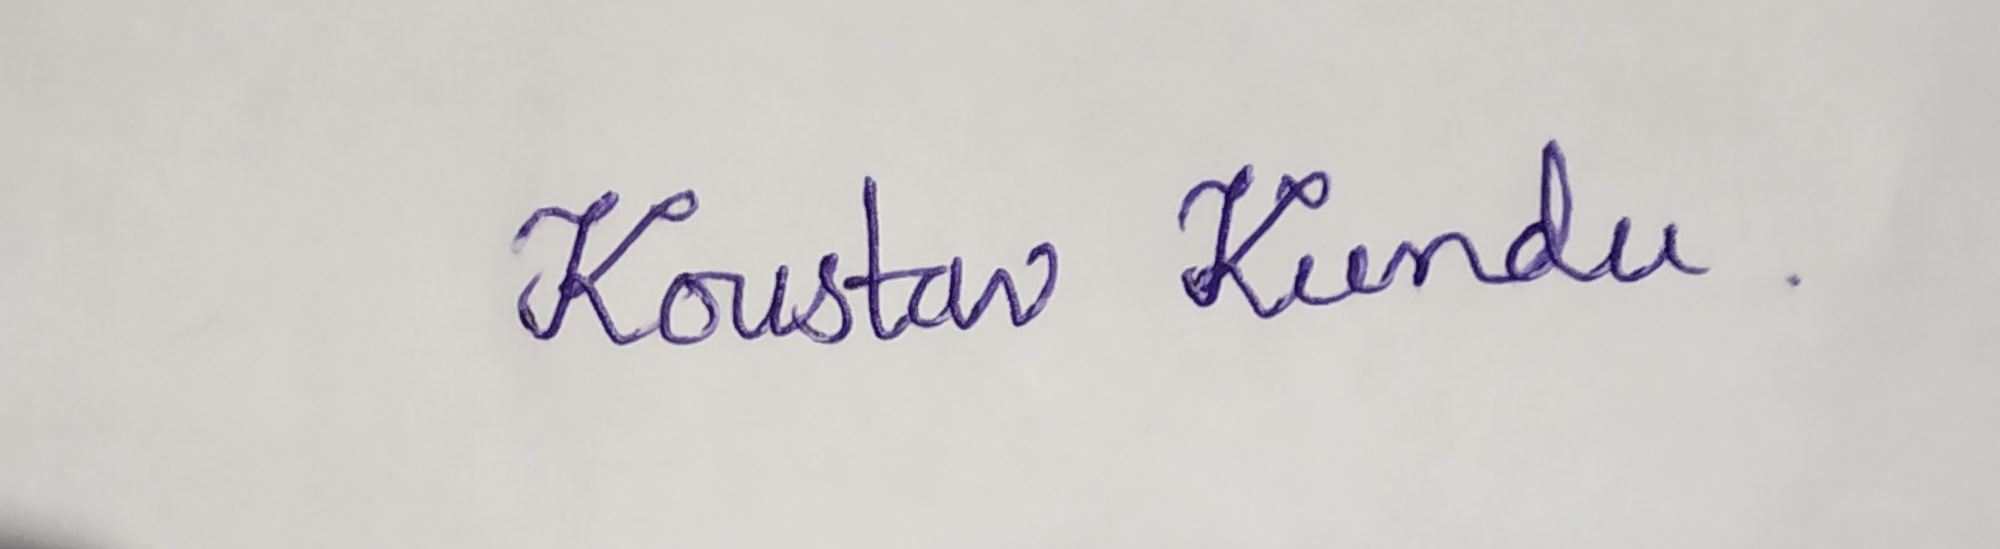 Koustav Kundu.